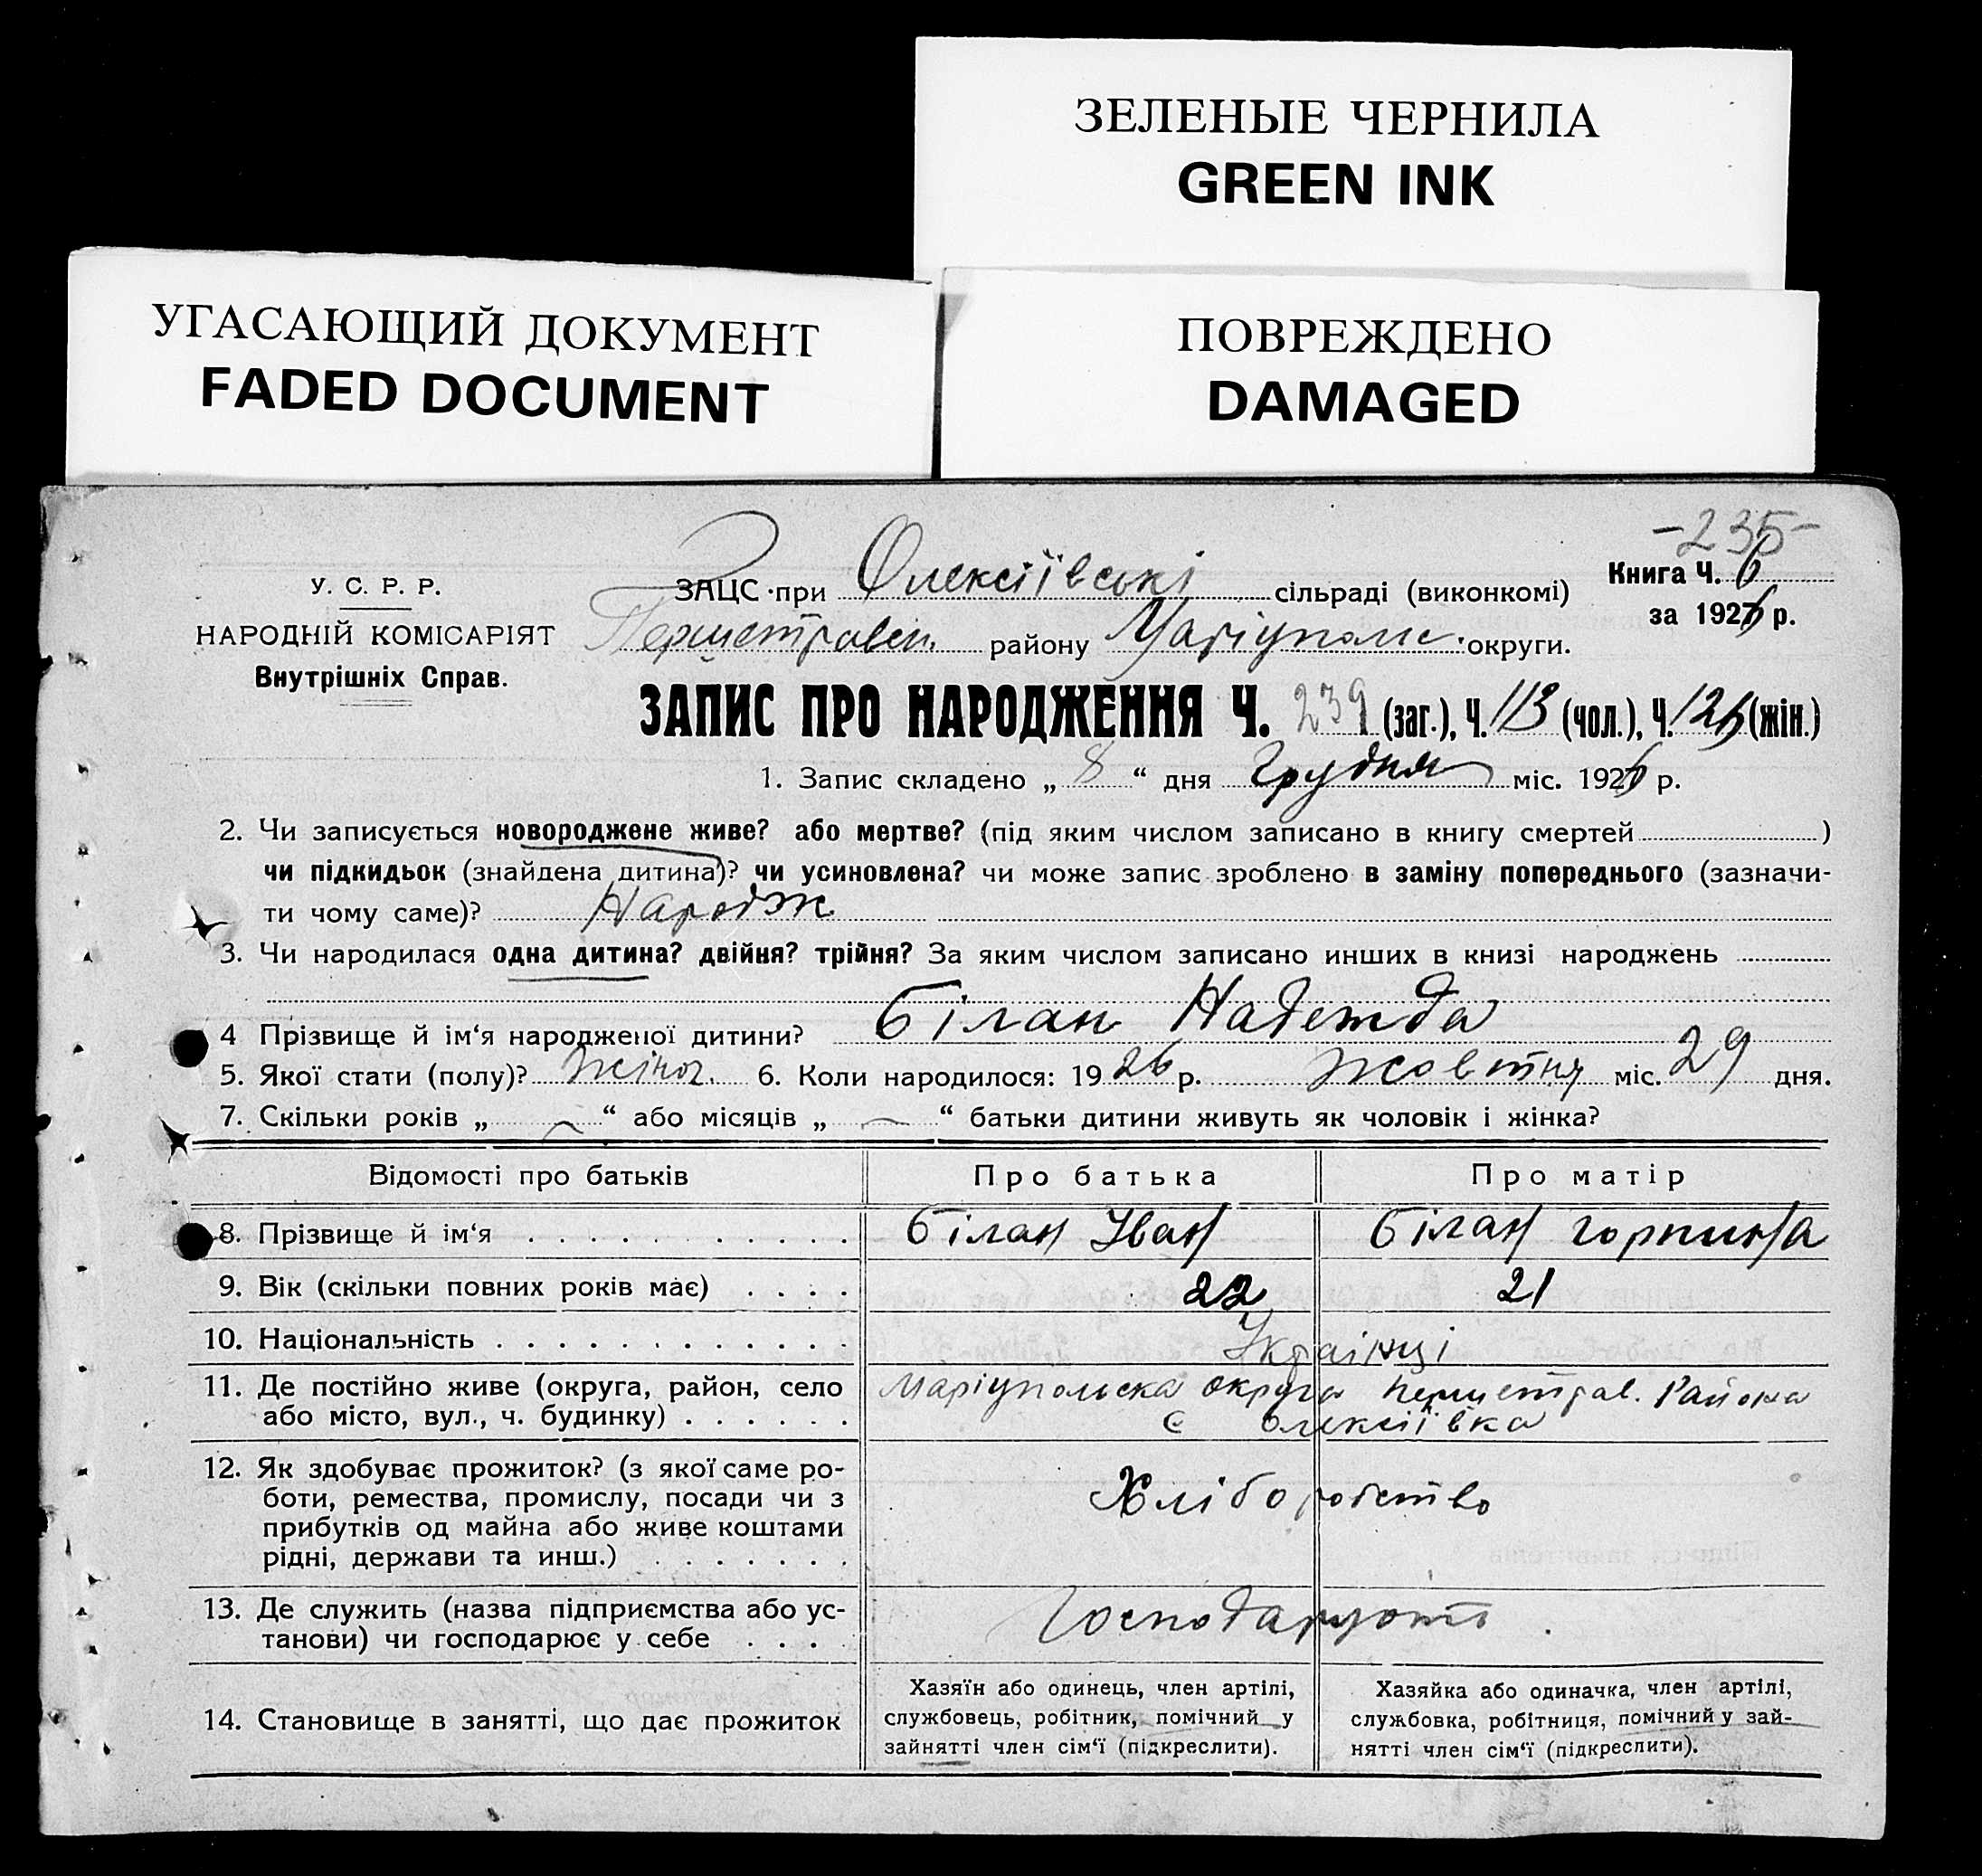 ЗЕЛЕНЫЕ ЧЕРНИЛА
GREEN INK
УГАСАЮЩИЙ ДОКУМЕНТ
FADED DOCUMENT
ПОВРЕЖДЕНО
DAMAGED
-235-
У. С. Р. Р.
НАРОДНІЙ КОМІСАРІЯТ
Внутрішніх Справ.
ЗАЦС при Олексіївські сільраді (виконкомі)
Першетравен. району Маріуполь. округи.
Книга Ч. 6
за 1926 р.
ЗАПИС ПРО НАРОДЖЕННЯ Ч. 239 (заг.), Ч. 113 (чол.), Ч. 126 (жін.)
1. Запис складено „ 8 “ дня Грудня міс. 1926 р.
2. Чи записується новороджене живе? або мертве? (під яким числом записано в книгу смертей )
чи підкидьок (знайдена дитина)? чи усиновлена? чи може запис зроблено в заміну попереднього (зазначи-
ти чому саме)? Народж
3. Чи народилася одна дитина? двійня? трійня? За яким числом записано инших в книзі народжень
4 Прізвище й ім‘я народженої дитини? Білан Надежда
5. Якої стати (полу)? Жіноч. 6. Коли народилося: 1926 р. Жовтня міс. 29 дня.
7. Скільки років „ — “ або місяців „ — “ батьки дитини живуть як чоловік і жінка?
Відомості про батьків Про батька Про матір
8. Прізвище й ім‘я Білан Іван Білан Горпина
9. Вік (скільки повних років має) 22 21
10. Національність Українці
11. Де постійно живе (округа, район, село Маріупольска округа Першетрав. Района
або місто, вул., ч. будинку) с Олексіївка
12. Як здобуває прожиток? (з якої саме ро-
боти, ремества, промислу, посади чи з
прибутків од майна або живе коштами
рідні, держави та инш.)
Хліборобство
13. Де служить (назва підприємства або ус-
танови) чи господарює у себе
Господарюють
14. Становище в занятті, що дає прожиток
Хазяїн або одинець, член артілі,
службовець, робітник, помічний у
зайнятті член сім‘ї (підкреслити).
Хазяйка або одиначка, член артілі,
службовка, робітниця, помічний у зай-
нятті член сім‘ї (підкреслити).